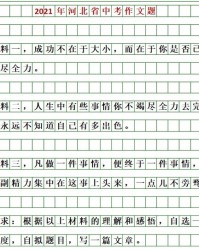 2021年河北省中考作文题
料一，成功不在于大小，而在于你是否已
尽全力。
料二，人生中有些事情你不竭尽全力去完
永远不知道自己有多出色。
料三，凡做一件事情，便终于一件事情，
副精力集中在这事上头，一点儿不旁骛
求：根据以上材料的理解和感悟，自选一
度，自拟题目，写一篇文章。